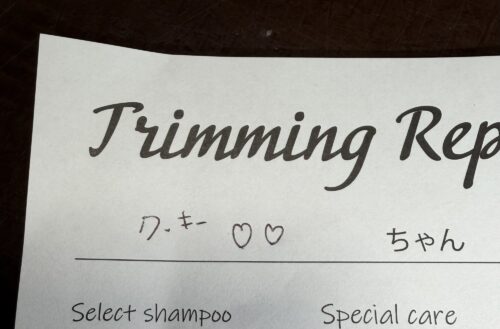 Trimming Rep
クッキー ♡♡ ちゃん
Select shampoo Special care